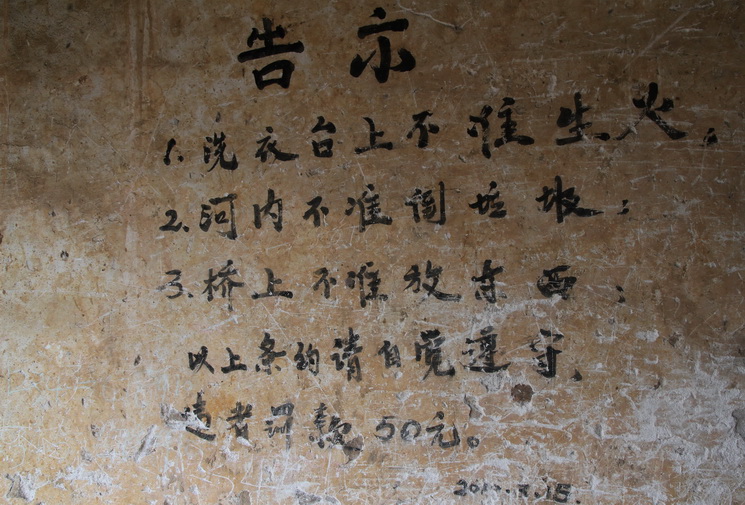 告示
1.洗衣台上不准生火;
2.河内不准倒垃圾;
3.桥上不准放东西;
以上条约请自觉遵守、
违者罚款50元。